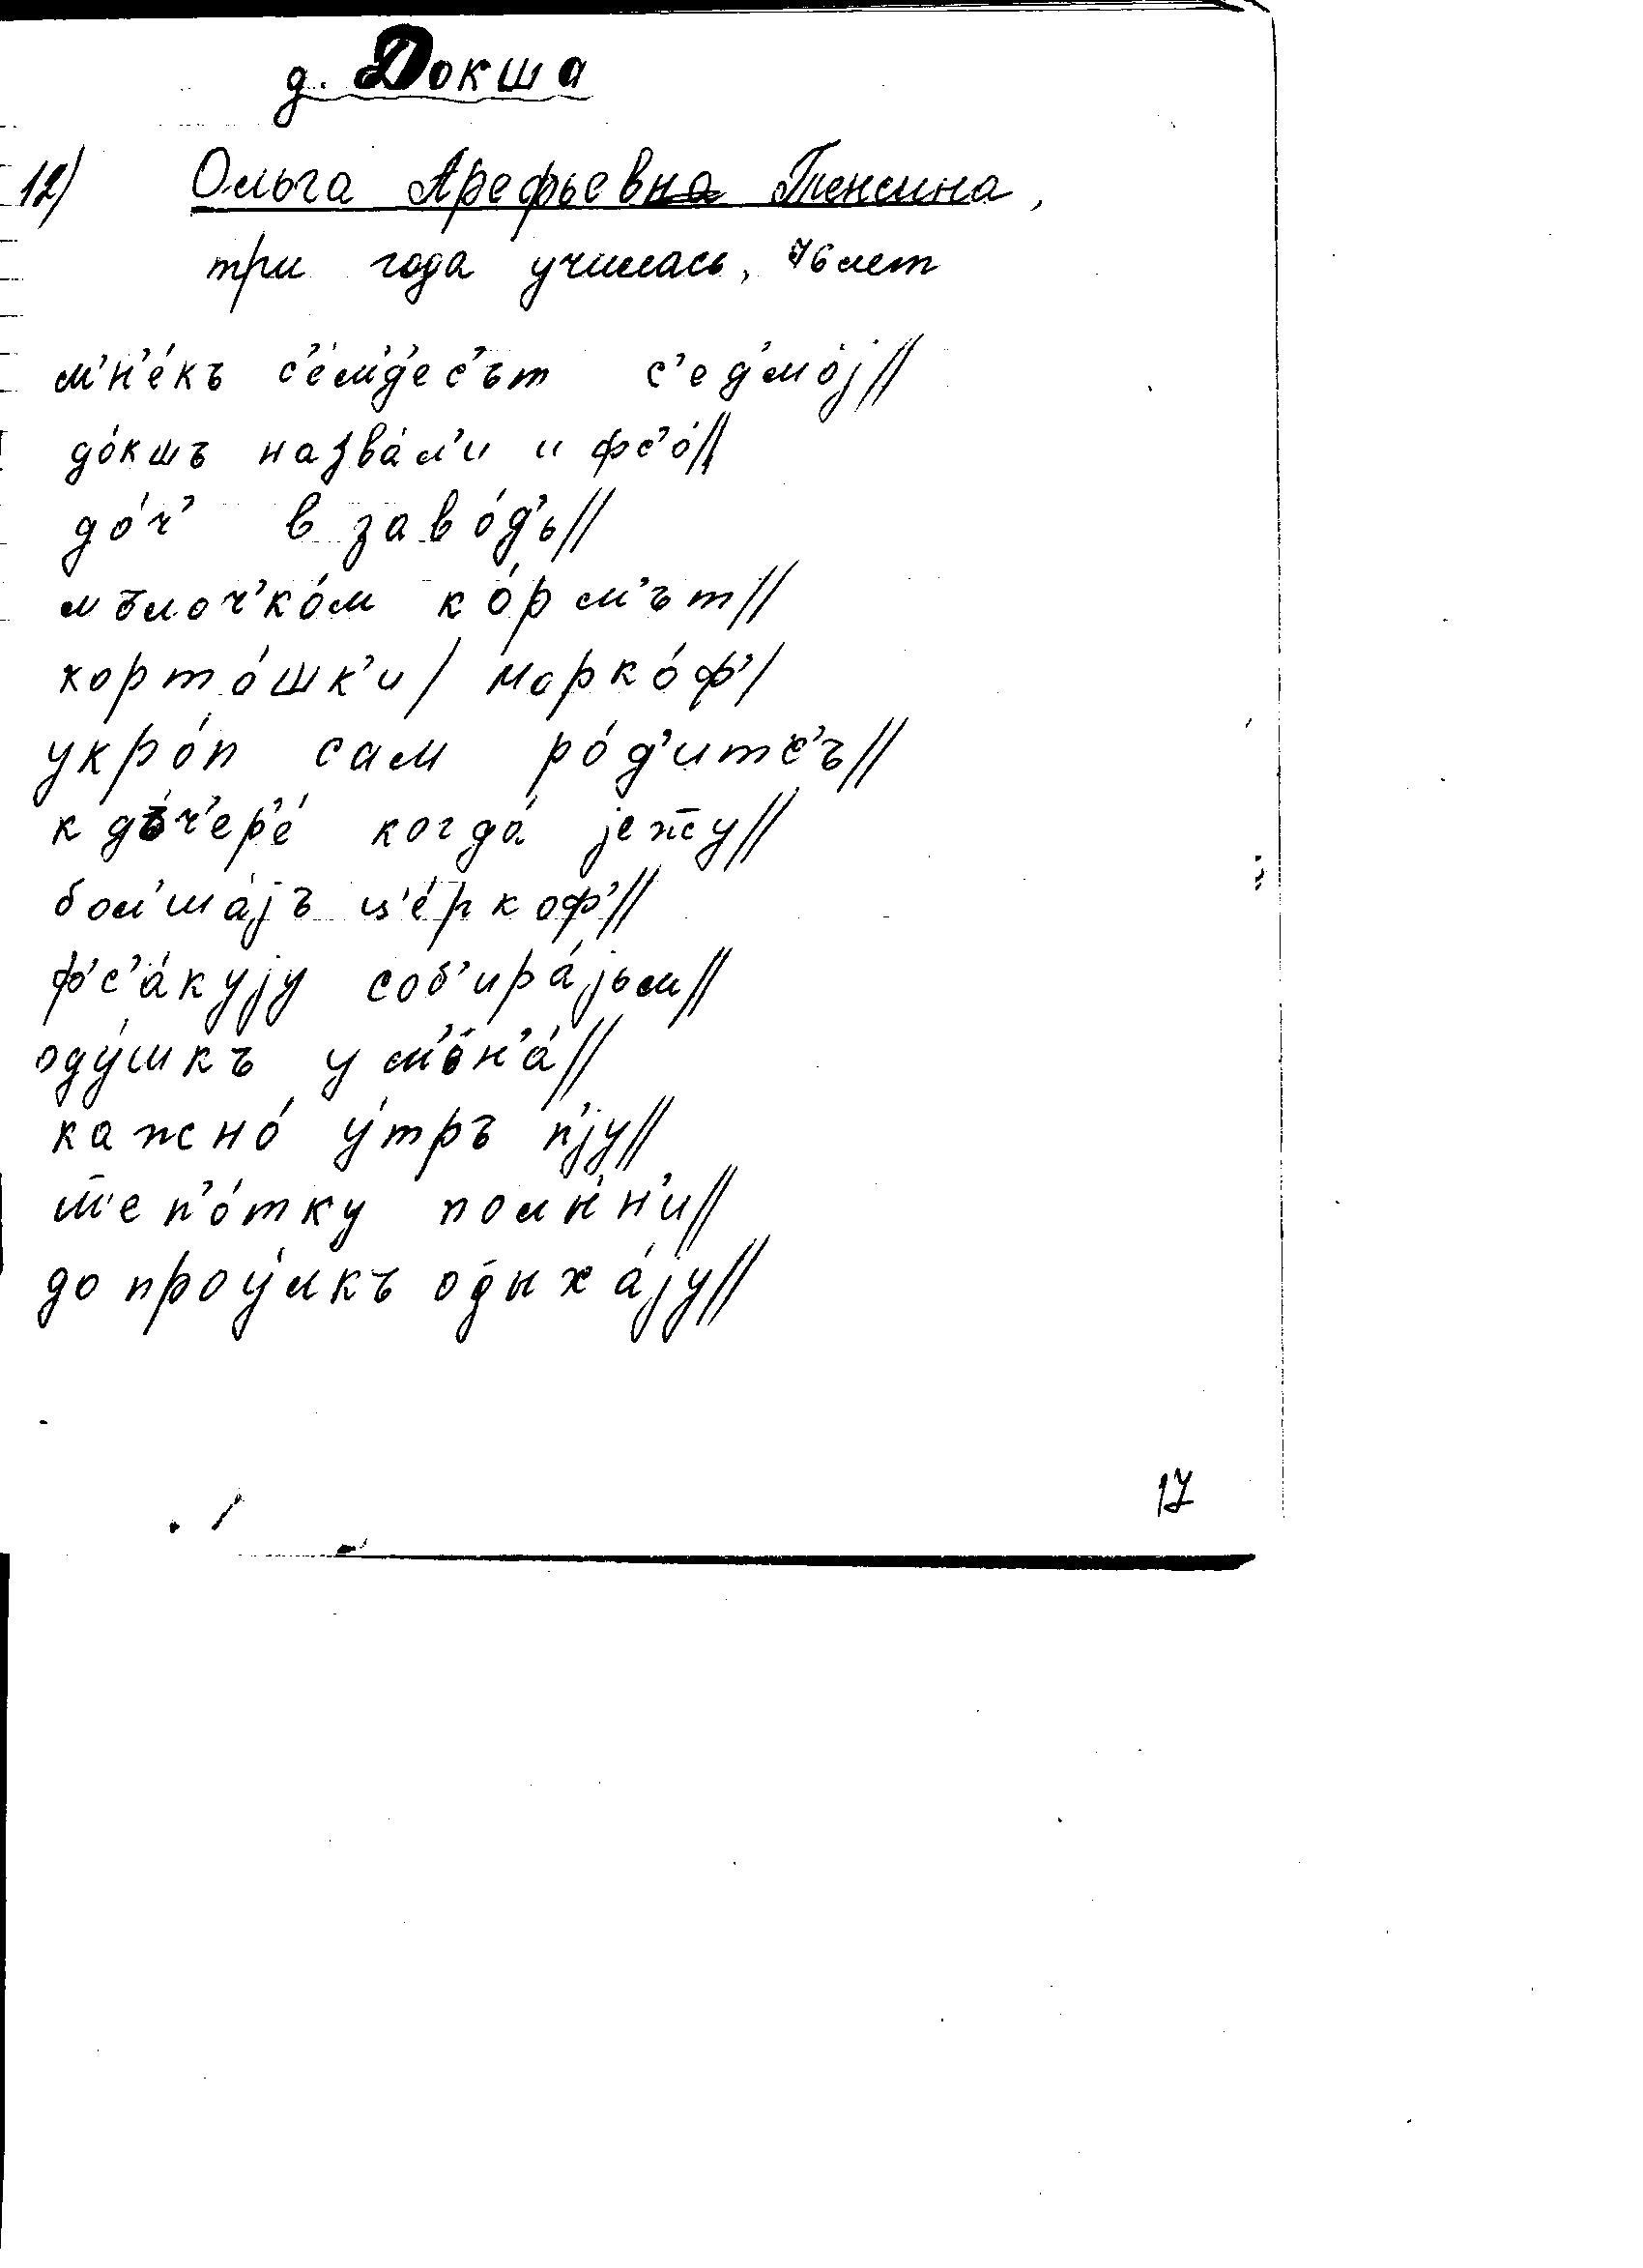 д. Докша
12) Ольга Арефьевна Тенсина,
три года училась, 76 лет
м'н'е́къ с'е́м'д'ес'ът с'ед'мо́j//
до́кшъ назва́л'и и фс'о́//
до́ч' в заво́д'ь//
мълоч'ко́м ко́рм'ът//
корто́шк'и/морко́ф'/
укро́п сам ро́д'итс'ъ//
к дъч'ер'е́ когда́ jежу//
бол'ша́jъ ц'е́ркоф'//
ф'с'а́куjу соб'ира́jьм//
оду́шкъ у м'ен'а́//
кажно́ у́тръ п'jу//
т'еп'о́тку полн'н'и//
до проу́лкъ одыха́jу//
17